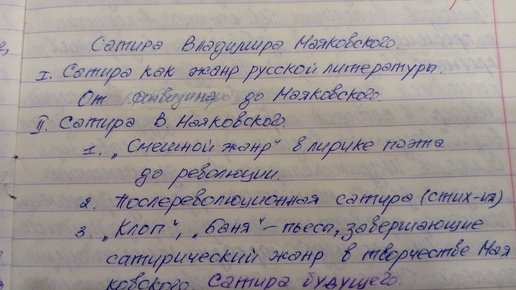 Сатира Владимира Маяковского.
I. Сатира как жанр русской литературы.
От Фонвизина до Маяковского.
II. Сатира В. Маяковского.
1. „Смешной жанр" в лирике поэта
до революции.
2. Послереволюционная сатира (стих-ия)
3. „Клоп", „Баня" – пьесы, завершающие
сатирический жанр в творчестве Мая
ковского. Сатира будущего.